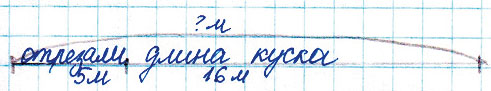 ? м
отрезали длина куска
5м 16м